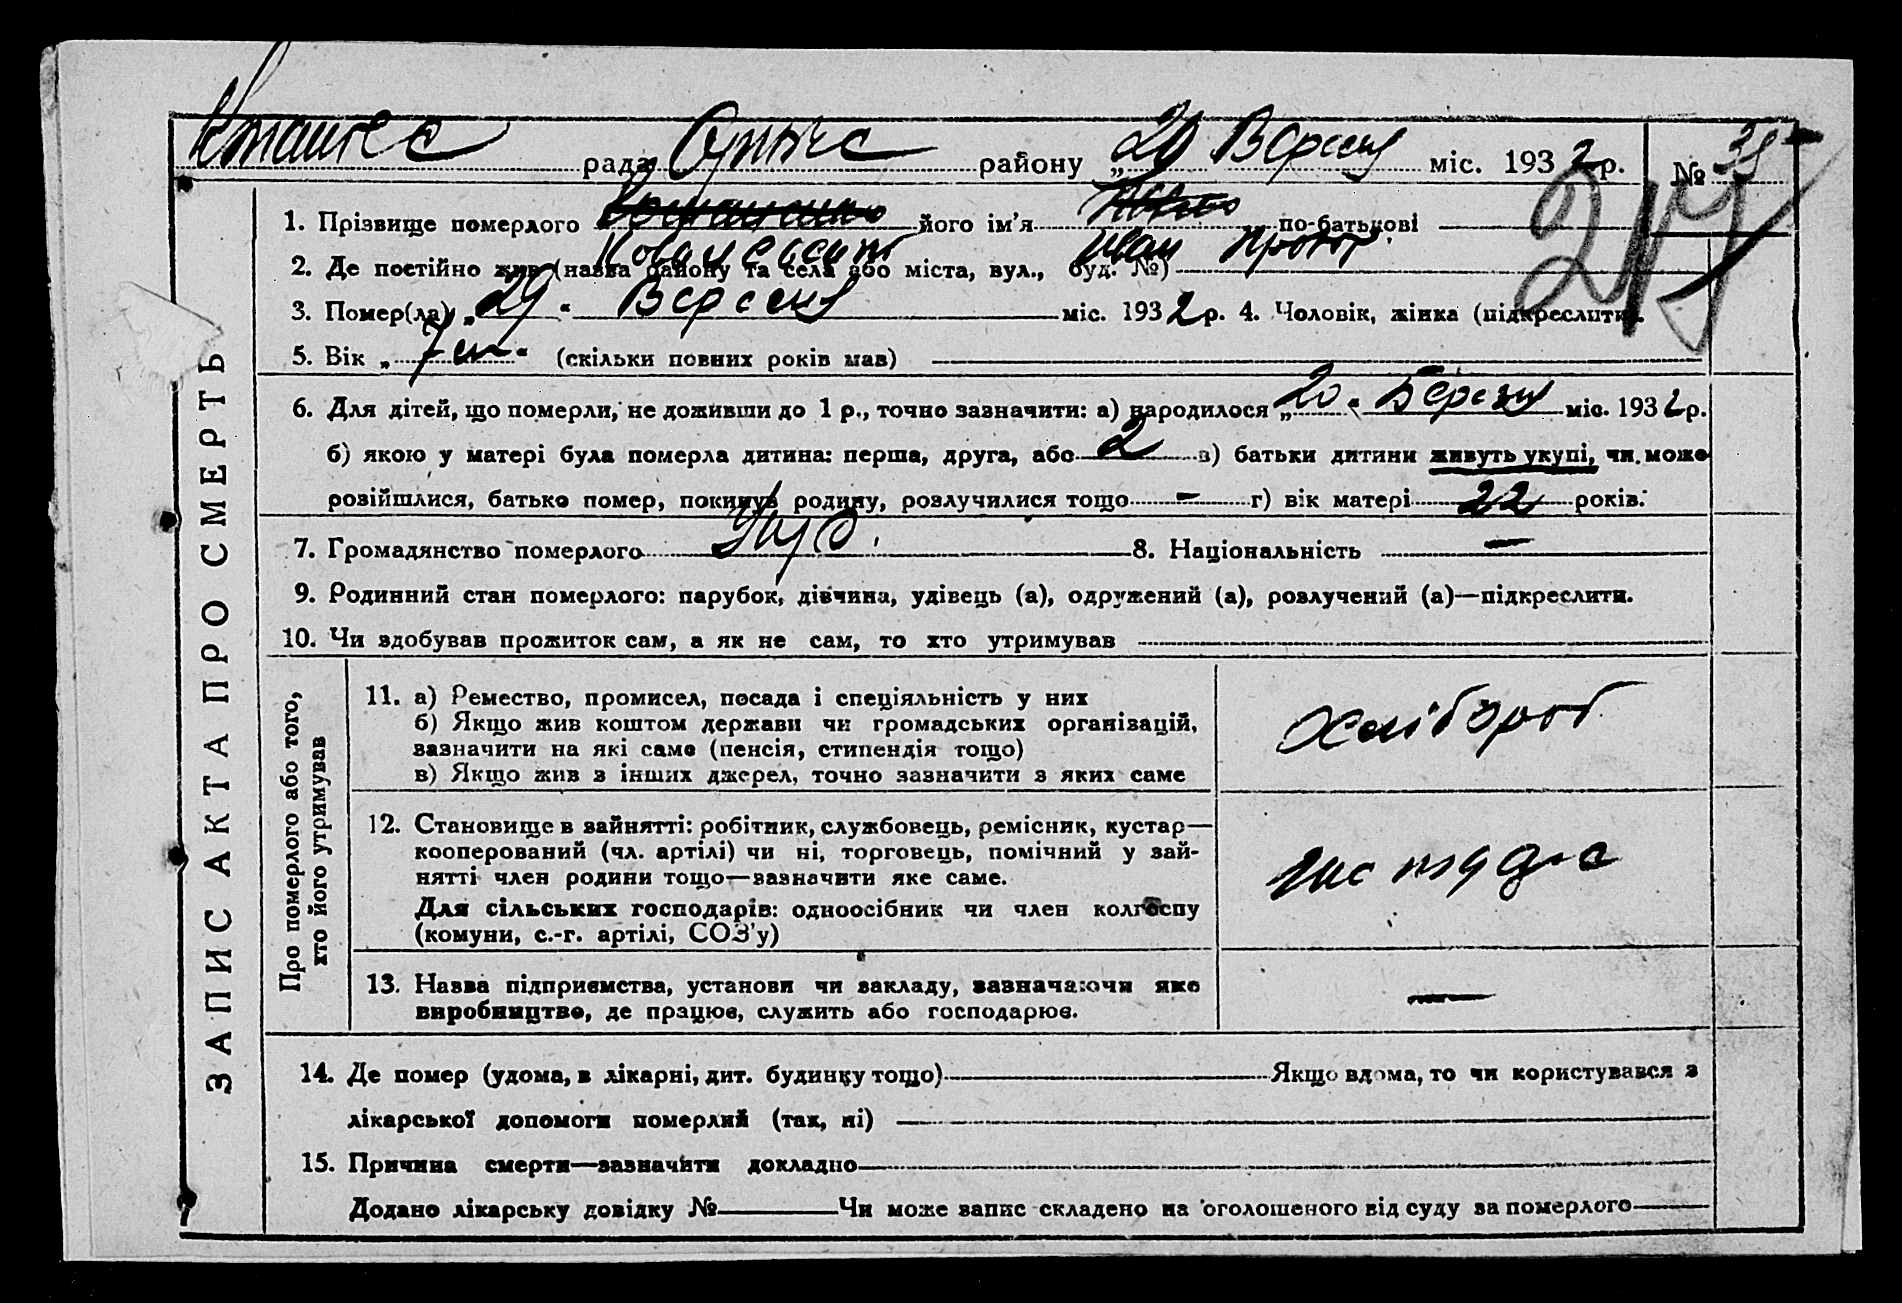 рада района "20 Вересня міс. 1932 р. № 38
217
ЗАПИС АКТА ПРО СМЕРТЬ
1. Прізвище померлого його ім'я по-батькові
Іван Прокоп
2. Де постійно жив (назва району та села або міста, вул., буд. №)
3. Помер(ла) „29“ Вересня міс. 1932 р. 4. Чоловік, жінка (підкреслити).
5. Вік „7 “ (скільки повних років мав)
6. Для дітей, що померли, не доживши до 1 р., точно зазначити: а) народилося „20“ Березня міс. 1932 р.
б) якою у матері була померла дитина: перша, друга, або 2 в) батьки дитини живуть укупі, чи може
розійшлися, батько помер, покинув родину, розлучилися тощо - г) вік матері 22 років.
7. Громадянство померлого Укр. 8. Національність —
9. Родинний стан померлого: парубок, дівчина, удівець (а), одружений (а), розлучений (а)—підкреслити.
10. Чи здобував прожиток сам, а як не сам, то хто утримував
Про померлого або того,
хто його утримував
11. а) Ремество, промисел, посада і спеціяльність у них
б) Якщо жив коштом держави чи громадських організацій,
зазначити на які саме (пенсія, стипендія тощо)
в) Якщо жив з інших джерел, точно зазначити з яких саме
Хлібороб
12. Становище в зайнятті: робітник, службовець, ремісник, кустар—
кооперований (чл. артілі) чи ні, торговець, помічний у зай-
нятті член родини тощо—зазначити яке саме.
Для сільських господарів: одноосібник чи член колгоспу
(комуни, с.-г. артілі, СОЗ'у)
13. Назва підприємства, установи чи закладу, зазначаючи яке
виробництво, де працює, служить або господарює.
—
14. Де помер (удома, в лікарні, дит. будинку тощо) Якщо вдома, то чи користувався з
лікарської допомоги померлий (так, ні)
15. Причина смерти—зазначити докладно
Додано лікарську довідку № Чи може запис складено на оголошеного від суду за померлого